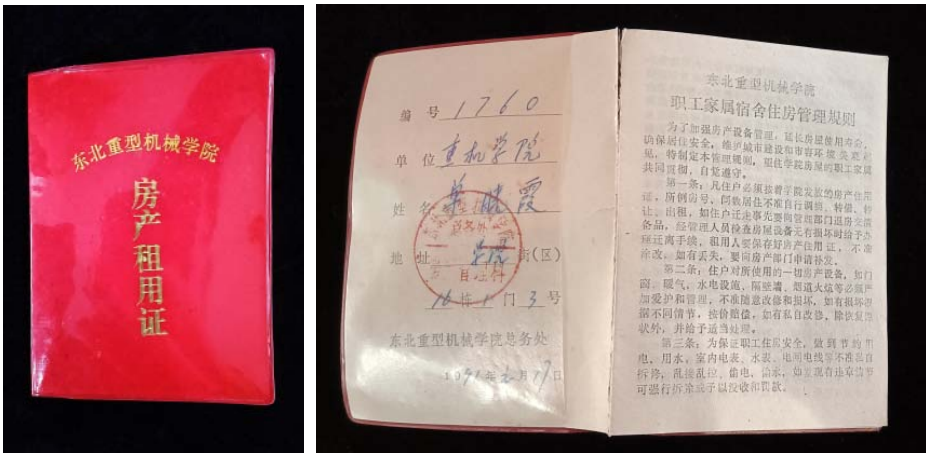 东北重型机械学院
房产租用证
编号 1760
单位 重机学院
姓名 晓霞
地址 学院 街(区)
16 栋 1 门 3 号
东北重型机械学院总务处
1991年2月19日
东北重型机械学院
职工家属宿舍住房管理规则
为了加强房产设备管理，延长房屋使用寿命，
确保居住安全，维护城市建设和市容环境美观
，特制定本管理规则，现住学院房屋的职工家属
共同贯彻，自觉遵守。
第一条：凡住户必须按着学院发放的房产住用
证，所例房号、间数居住不准自行调换、转借、转
让、出租，如住户迁走事先要向管理部门退房交清
备品，经管理人员检查房屋设备无有损坏时给予办
理迁离手续，租用人要保存好房产住用证，不准
涂改。如有丢失，要向房产部门申请补发。
第二条：住户对所使用的一切房产设备，如门
窗、暖气、水电设施，隔壁墙、烟道火炕等必须严
加爱护和管理，不准随意改修和损坏，如有损坏根
据不同情节，按价赔偿，如有私自改修，除恢复原
状外，并给予适当处理。
第三条：为保证职工住房安全，做到节约用
电、用水。室内电表、水表、电闸电线等不准私自
拆修，乱接乱拉、偷电、偷水，如发现有违章情节
可强行拆除或予以没收和罚款。